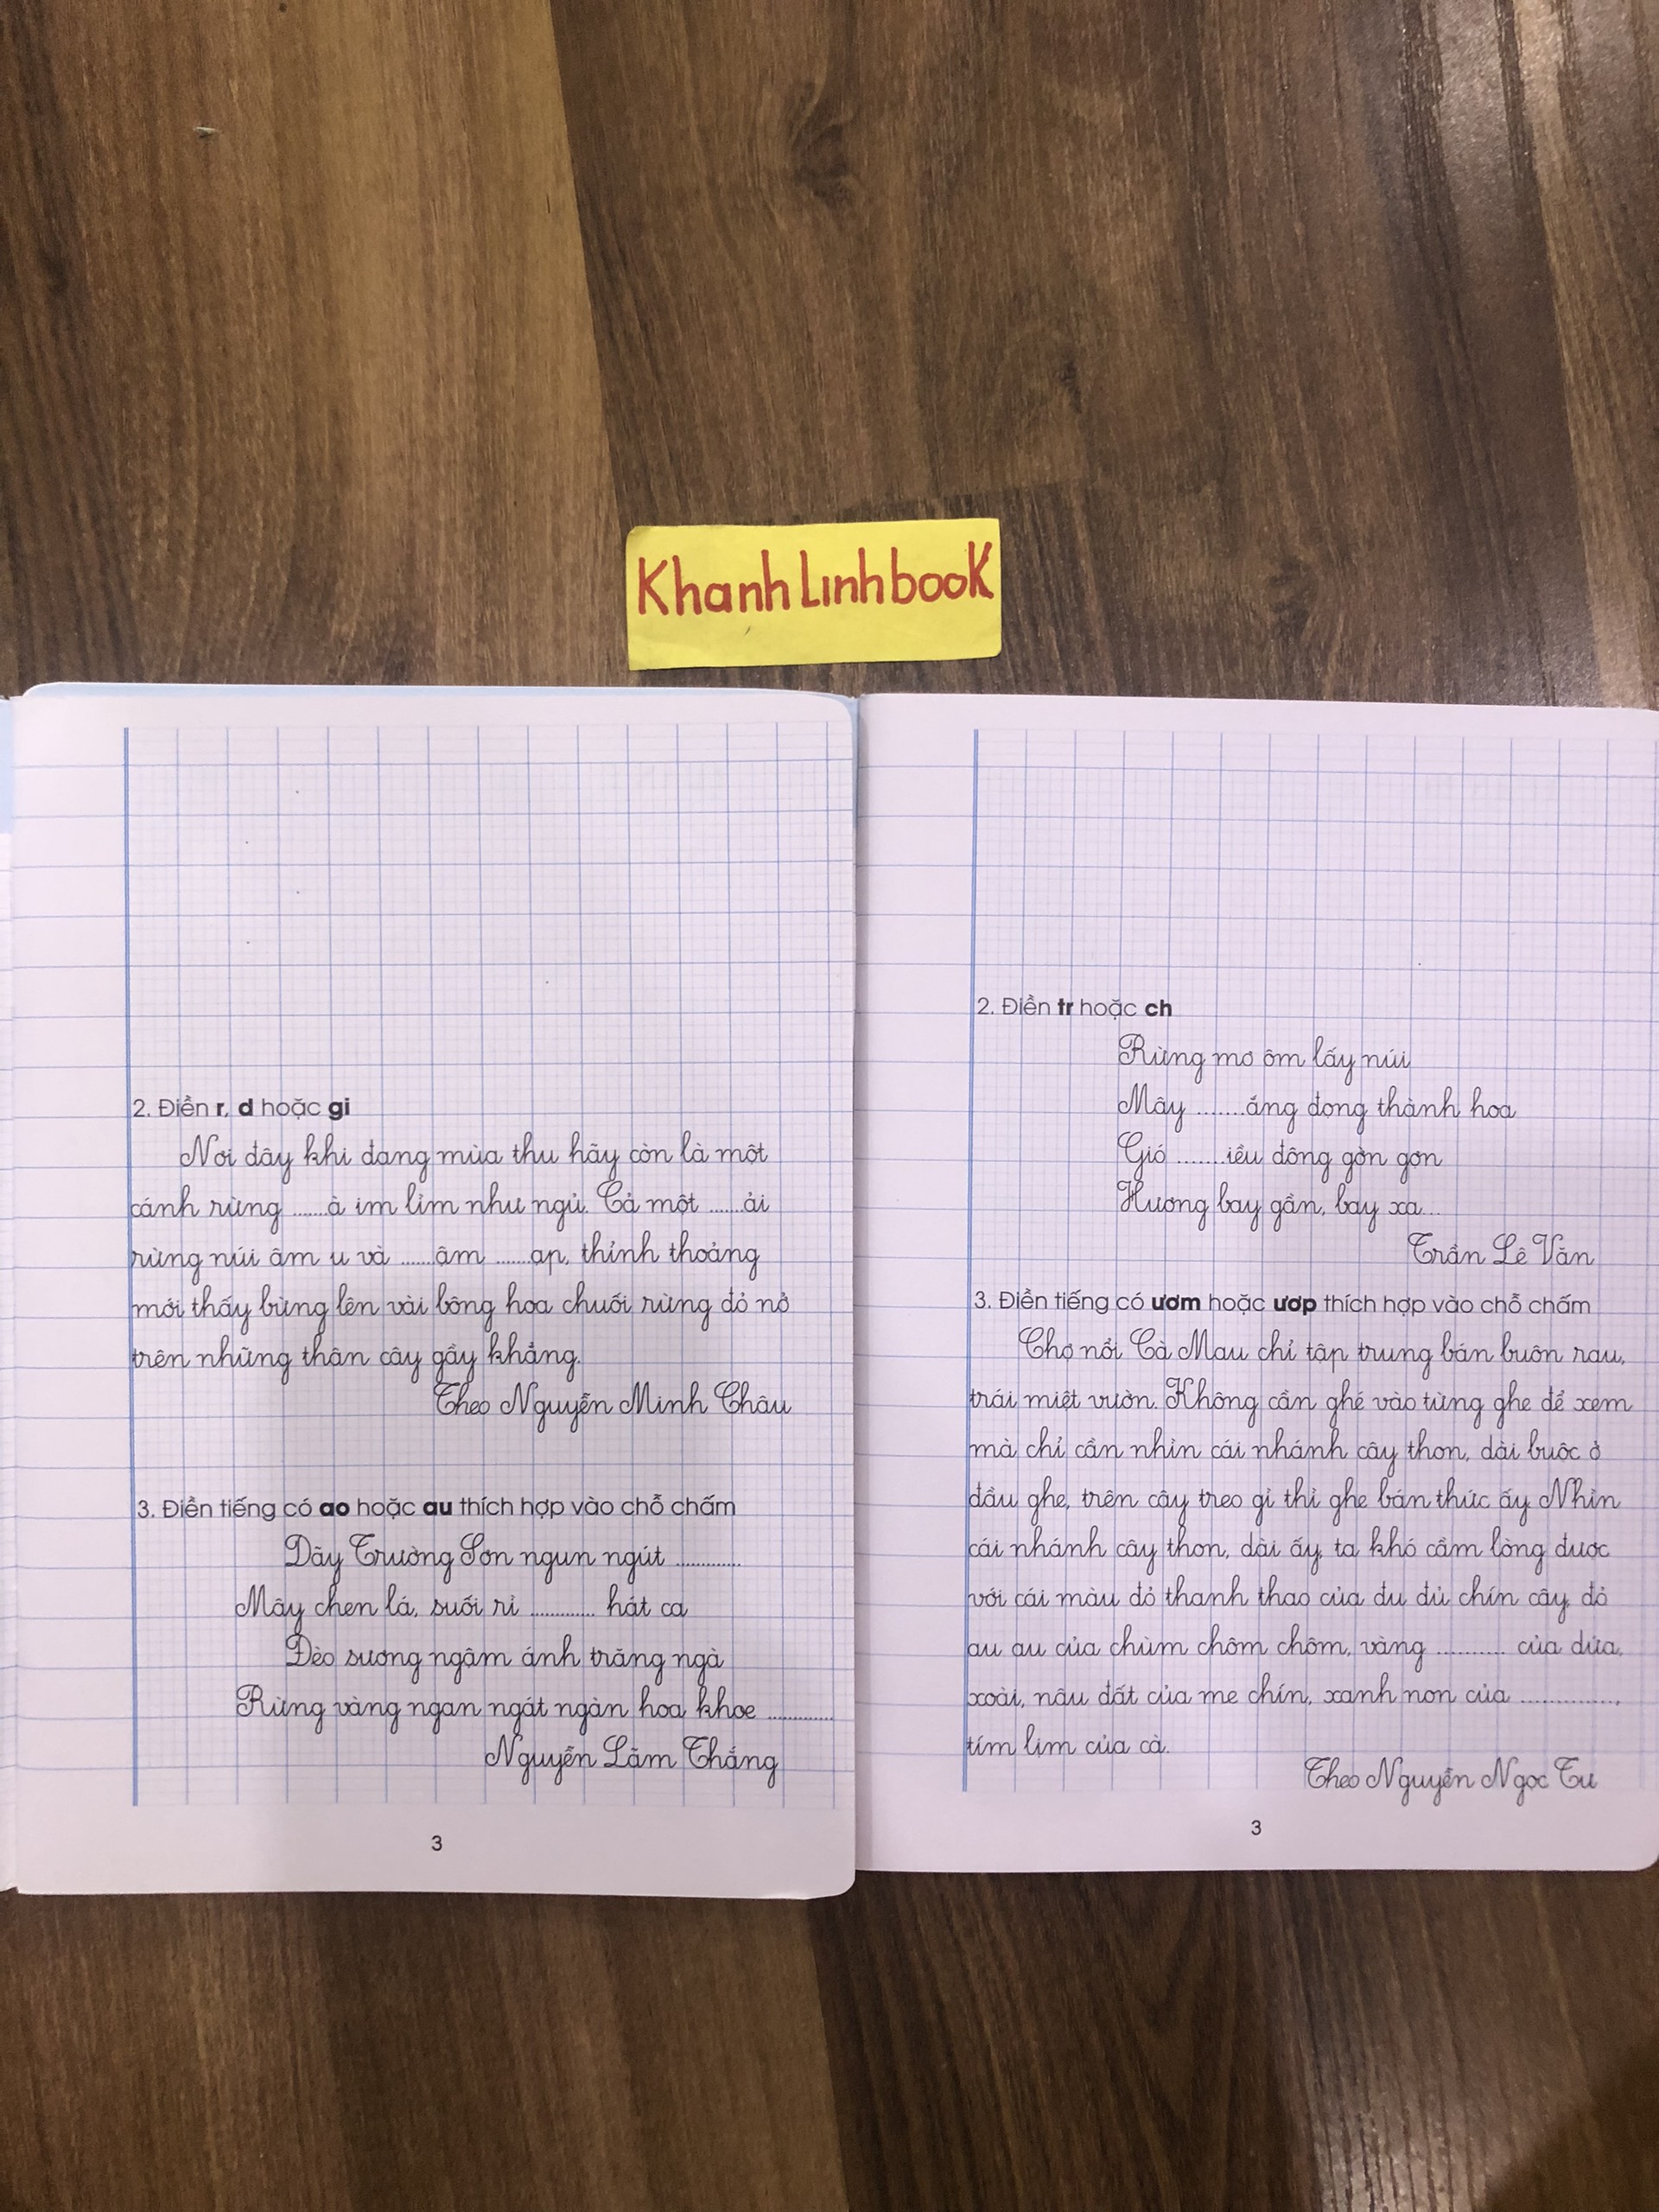 KhanhLinhbook
2. Điền r, d hoặc gi
Nơi đây khi đang mùa thu hãy còn là một
cánh rừng ......à im lìm như ngủ. Cả một ......ải
rừng núi âm u và ......âm ......ạp, thỉnh thoảng
mới thấy bừng lên vài bông hoa chuối rừng đỏ nở
trên những thân cây gầy khẳng.
Theo Nguyễn Minh Châu
3. Điền tiếng có ao hoặc au thích hợp vào chỗ chấm
Dãy Trường Sơn ngun ngút ............
Mây chen lá, suối rì ............ hát ca
Đèo sương ngậm ánh trăng ngà
Rừng vàng ngan ngát ngàn hoa khoe ............
Nguyễn Lãm Thắng
3
2. Điền tr hoặc ch
Rừng mơ ôm lấy núi
Mây .......ắng đọng thành hoa
Gió .......iều đông gờn gợn
Hương bay gần, bay xa...
Trần Lê Văn
3. Điền tiếng có ươm hoặc ươp thích hợp vào chỗ chấm
Chợ nổi Cà Mau chỉ tập trung bán buôn rau,
trái miệt vườn. Không cần ghé vào từng ghe để xem
mà chỉ cần nhìn cái nhánh cây thon, dài buộc ở
đầu ghe, trên cây treo gì thì ghe bán thức ấy. Nhìn
cái nhánh cây thon, dài ấy, ta khó cầm lòng được
với cái màu đỏ thanh thao của đu đủ chín cây, đỏ
au au của chùm chôm chôm, vàng ............ của dứa,
xoài, nâu đất của me chín, xanh non của ................,
tím lịm của cà.
Theo Nguyễn Ngọc Tư
3